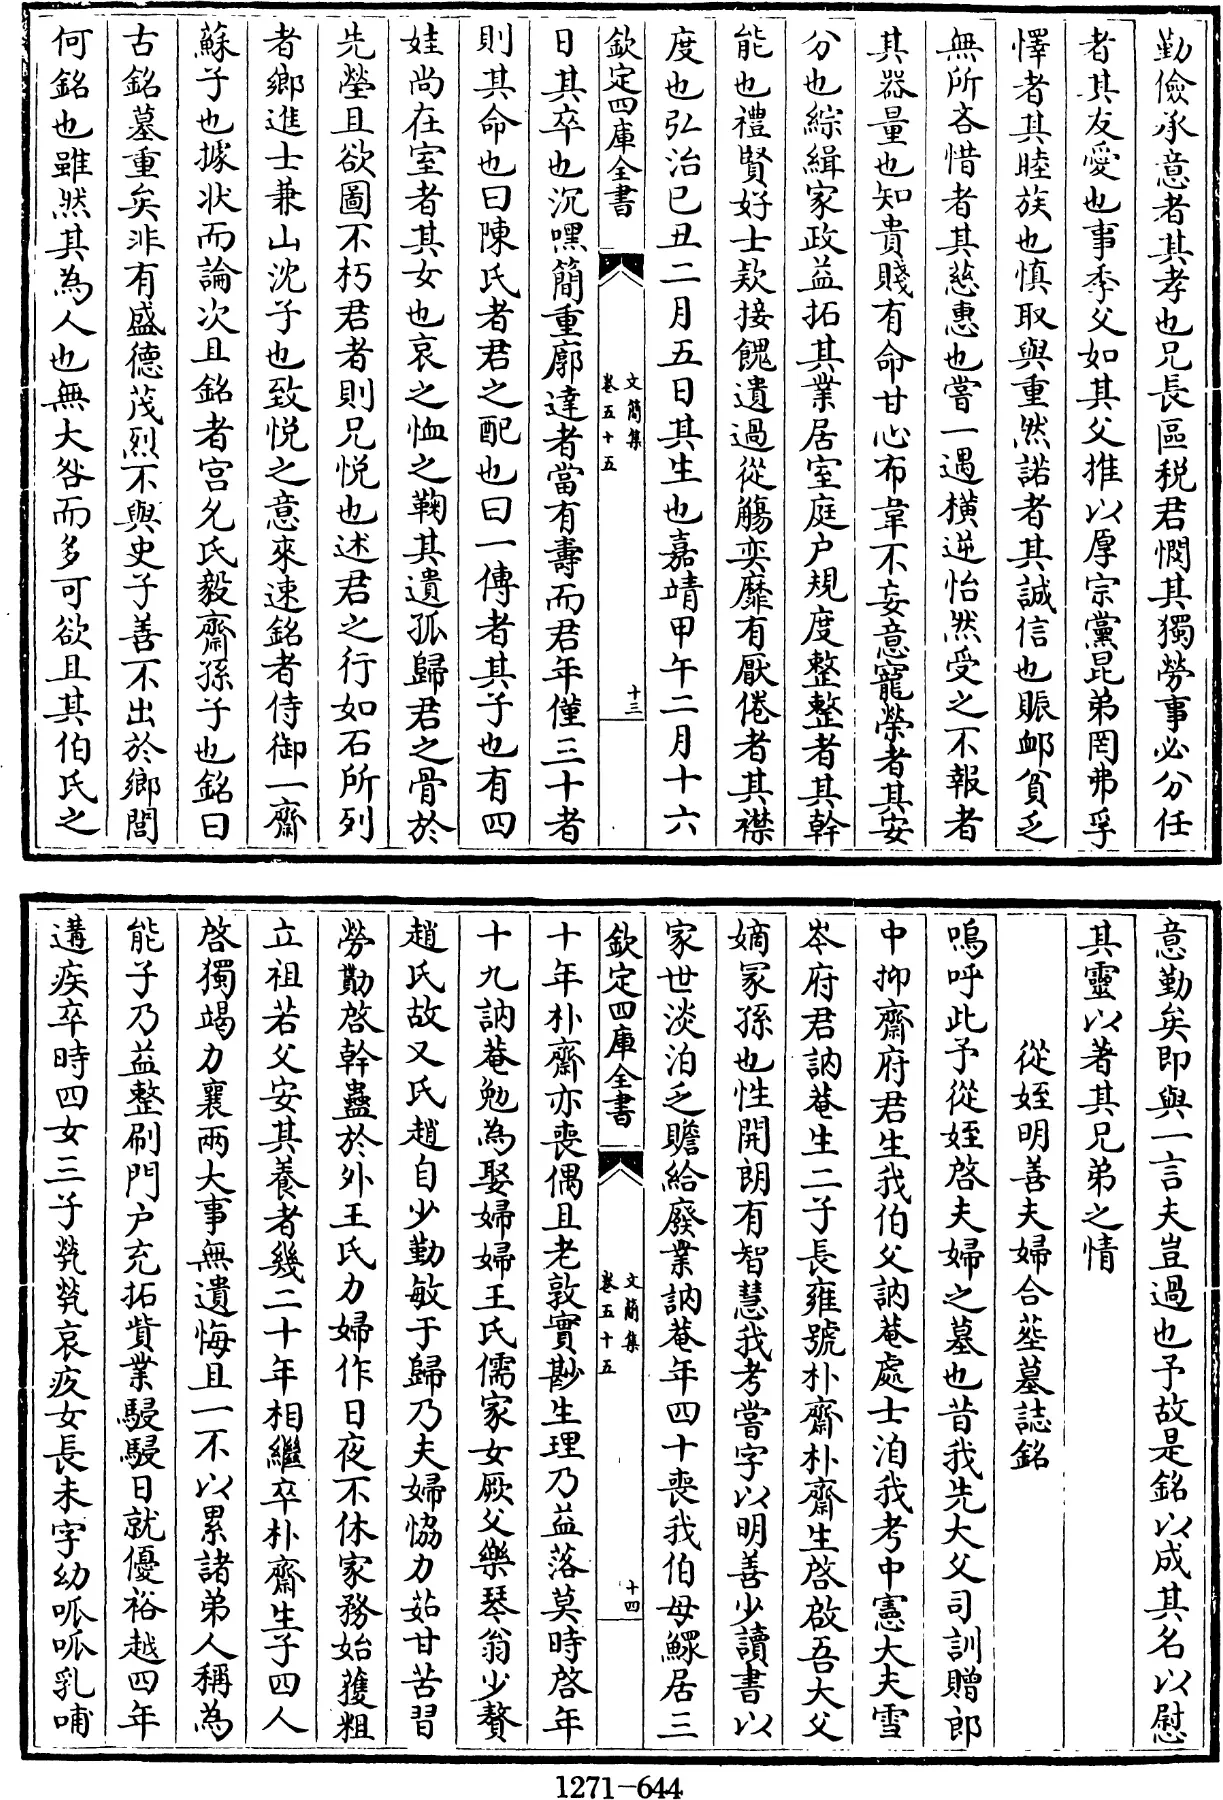 勤儉承意者其孝也兄長區税君憫其獨勞事必分任
者其友愛也事季父如其父推以厚宗黨昆弟罔弗孚
懌者其睦族也慎取與重然諾者其誠信也賑衈貧乏
無所吝惜者其慈惠也嘗一遇橫逆怡然受之不報者
其器量也知貴賤有命甘心布韋不妄意寵榮者其安
分也綜緝家政益拓其業居室庭户規度整整者其幹
能也禮賢好士欵接餽遺過從觴奕靡有厭倦者其襟
度也弘治己丑二月五日其生也嘉靖甲午二月十六
欽定四庫全書
文簡集
卷五十五
十三
日其卒也沉嘿簡重廓達者當有壽而君年僅三十者
則其命也曰陳氏者君之配也曰一傳者其子也有四
娃尚在室者其女也哀之恤之鞠其遺孤歸君之骨於
先塋且欲圖不朽君者則兄悦也述君之行如石所列
者鄉進士兼山沈子也致悦之意來速銘者侍御一齋
蘇子也據狀而論次且銘者宫允氏毅齋孫子也銘曰
古銘墓重矣非有盛德茂烈不與史子善不出於鄉閭
何銘也雖然其為人也無大咎而多可欲且其伯氏之
意勤矣即與一言夫豈過也予故是銘以成其名以慰
其靈以著其兄弟之情
從姪明善夫婦合葬墓誌銘
嗚呼此予從姪啓夫婦之墓也昔我先大父司訓贈郎
中抑齋府君生我伯父訥菴處士洎我考中憲大夫雪
岑府君訥菴生二子長雍號朴齋朴齋生啓啟吾大父
嫡冢孫也性開朗有智慧我考嘗字以明善少讀書以
家世淡泊乏贍給廢業訥菴年四十喪我伯母鰥居三
欽定四庫全書
文簡集
卷五十五
十四
十年朴齋亦喪偶且老敦實尠生理乃益落莫時啓年
十九訥菴勉為娶婦婦王氏儒家女厥父樂琴翁少贅
趙氏故又氏趙自少勤敏于歸乃夫婦恊力茹甘苦習
勞勩啓幹蠱於外王氏力婦作日夜不休家務始獲粗
立祖若父安其養者幾二十年相繼卒朴齋生子四人
啓獨竭力襄兩大事無遺悔且一不以累諸弟人稱為
能子乃益整刷門户充拓貲業駸駸日就優裕越四年
遘疾卒時四女三子煢煢哀疚女長未字幼呱呱乳哺
1271-644